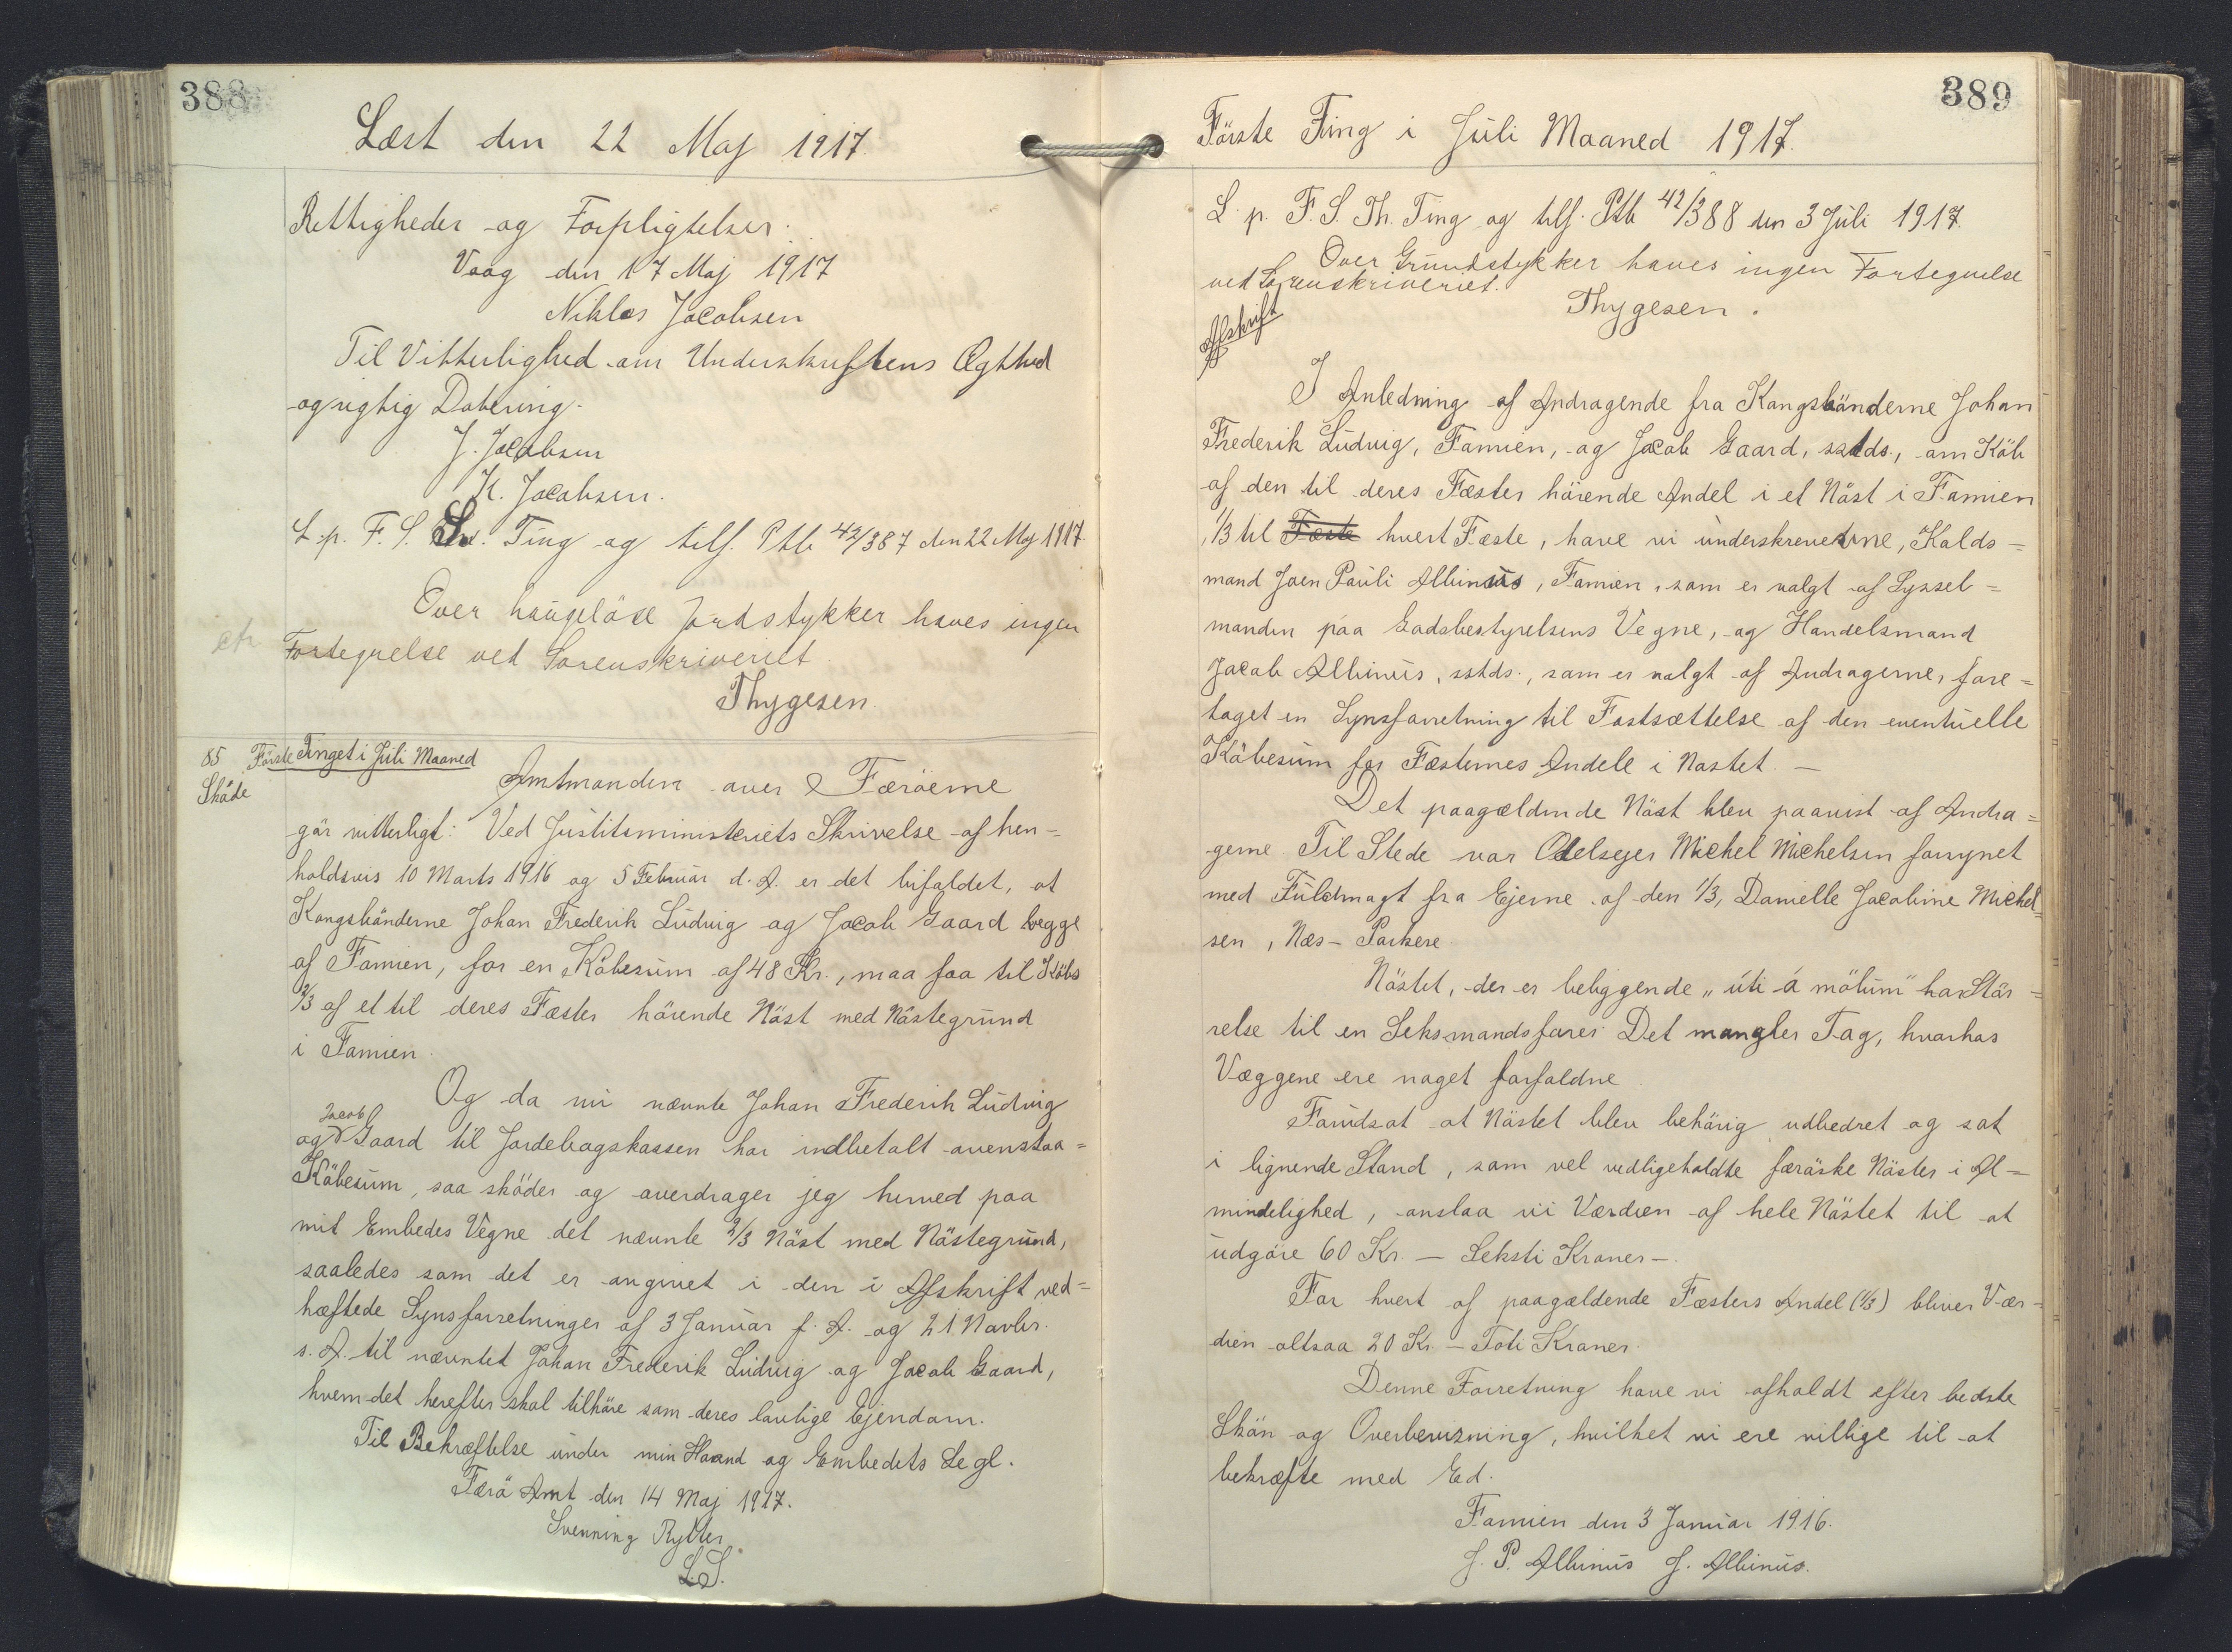 388
Læst den 22 Maj 1917.
Rettigheder og Forpligtelser.
Vaag den 17 Maj 1917
Niklas Jacobsen
Til Vitterlighed om Underskriftens Ægthed
og rigtig Datering.
J. Jacobsen
K. Jacobsen.
L. p. F. S. Ting og tilf. Ptb 42/387 den 22 Maj 1917
Over haugeløse Jordstykker haves ingen
Fortegnelse ved Sorenskriveriet.
Thygesen.
85 Förste Tinget i Juli Maaned
Sköde
Amtmanden over Færöerne
gör vitterligt: Ved Justitsministeriets Skrivelse af hen=
holdsvis 10 Marts 1916 og 5 Februar d. A. er det bifaldet, at
Kongsbönderne Johan Frederik Ludvig og Jacob Gaard begge
af Famien, for en Köbesum af 48 Kr., maa faa til Köbs
2/3 af et til deres Fæster hörende Nöst med Nöstegrund
i Famien.
Og da nu nævnte Johan Frederik Ludvig
og Jacob Gaard til Jordebogskassen har indbetalt ovenstaa=
Köbesum, saa sköder og overdrager jeg herved paa
mit Embedes Vegne det nævnte 2/3 Nöst med Nöstegrund,
saaledes som det er angivet i den i Afskrift ved=
hæftede Synsforretninger af 3 Januar f. A. og 21 Novbr.
s. A. til nævntet Johan Frederik Ludvig og Jacob Gaard,
hvem det herefter skal tilhöre som deres lovlige Ejendom.
Til Bekræftelse under min Haand og Embedets Segl.
Færö Amt den 14 Maj 1917.
Svenning Rytter.
L.S.
389
Förste Ting i Juli Maaned 1917.
L. p. F. S. Th. Ting og tilf. Ptb 42/388 den 3 Juli 1917.
Over Grundstykker haves ingen Fortegnelse
ved Sorenskriveriet.
Thygesen.
Afskrift
I Anledning af Andragende fra Kongsbönderne Johan
Frederik Ludvig, Famien, og Jacob Gaard, sstds., om Köb
af den til deres Fæster hörende Andel i et Nöst i Famien
1/3 til Fæste hvert Fæste, have vi underskrevedne, Kalds=
mand Joen Pauli Albinus, Famien, som er valgt af Syssel=
manden paa Godsbestyrelsens Vegne, og Handelsmand
Jacob Albinus, sstds., som er valgt af Andragerne, fore=
taget en Synsforretning til Fastsættelse af den eventuelle
Köbesum for Fæsternes Andele i Nøstet. —
Det paagældende Nöst blev paavist af Andra=
gerne. Til Stede var Odelsejer Michel Michelsen forsynet
med Fuldmagt fra Ejerne af den 1/3, Danielle Jacobine Michel=
sen, Næs - Porkere
Nöstet, der er beliggende „úti á mölum" har Stör=
relse til en Seksmandsfarer. Det mangler Tag, hvorhos
Væggene ere noget forfaldne
Forudsat at Nöstet blev behörig udbedret og sat
i lignende Stand, som vel vedligeholdte færöske Nöster i Al=
mindelighed, anslaa vi Værdien af hele Nöstet til at
udgöre 60 Kr. — Seksti Kroner —.
For hvert af paagældende Fæsters Andel (1/3) bliver Vær=
dien altsaa 20 Kr. — Toti Kroner.
Denne Forretning have vi afholdt efter bedste
Skön og Overbevisning, hvilket vi ere villige til at
bekræfte med Ed.
Famien den 3 Januar 1916.
J. P. Albinus J. Albinus.